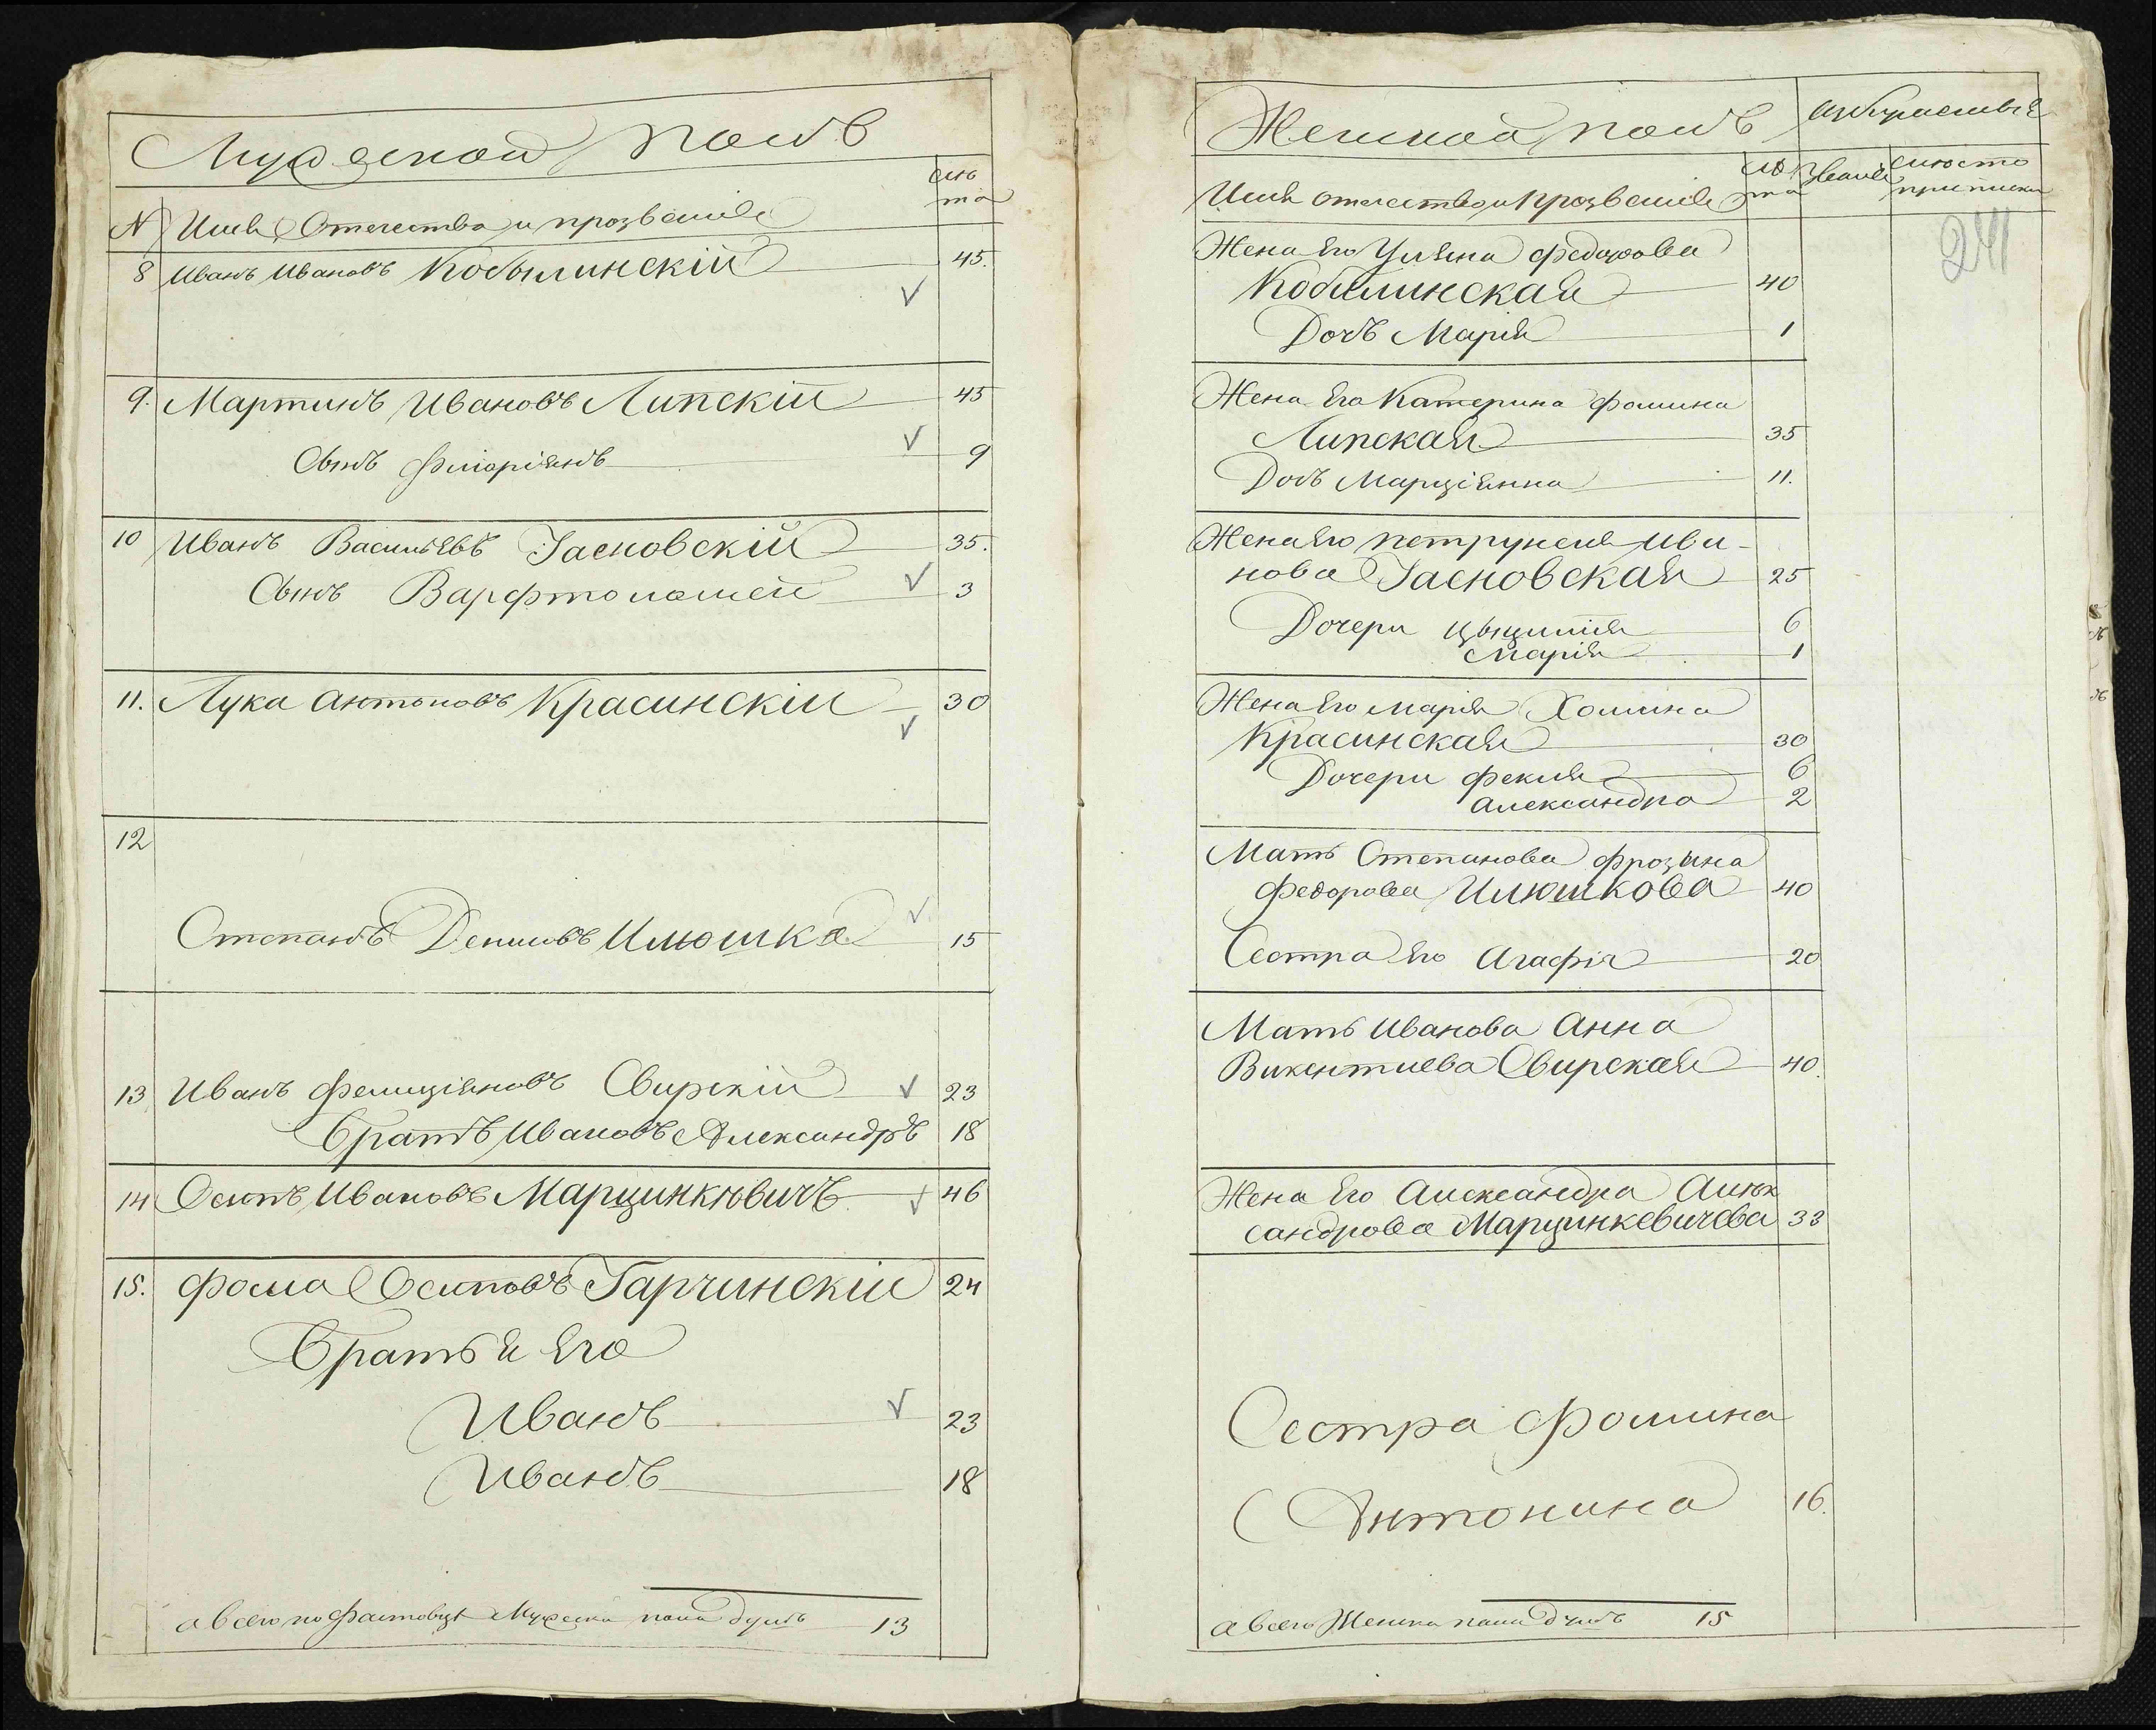 Мужескои полъ
лѣ
та
N Имя Отечество и прозвание
8 Иванъ Ивановъ Кобылинскій 45.
9. Мартинъ Ивановъ Липскій 45
Сынъ Флоріянъ 9
10 Иванъ Васильевъ Іасновскій 35.
Сынъ Варфтоломей 3
11. Лука Антоновъ Красинскій 30
12
Степанъ Денисовъ Илюшка 15
13 Иванъ Фелиціяновъ Свирскій 23
Братъ Ивановъ Александръ 18
14 Осипъ Ивановъ Марцинкювичъ 46
15. Фома Осиповъ Гарчинскій 24
Братья Его
Иванъ 23
Иванъ 18
а всего по Мужеска пола душъ 13
Женской полъ
241
Имя отчество и прозвание лѣ
та Звание место
приписки
Жена Его Уляна Федорова
Кобылинская 40
Дочь Марія 1
Жена Его Катерина Фомина
Липская 35
Дочь Марціянна 11.
Жена Его Петрунеля Ива-
нова Іасновская 25
Дочери 6
Марія 1
Жена Его Марія Хомина
Красинская 30
Дочери Фекля 6
Александра 2
Мать Степанова Фрозина
Федорова Илюшкова 40
Сестра Его Агафія 20
Мать Иванова Анна
Викентиева Свирская 40.
Жена Его Александра Алек
сандрова Марцинкевичева 33
Сестра Фомина
Антонина 16.
а всего Женска пола душъ 15